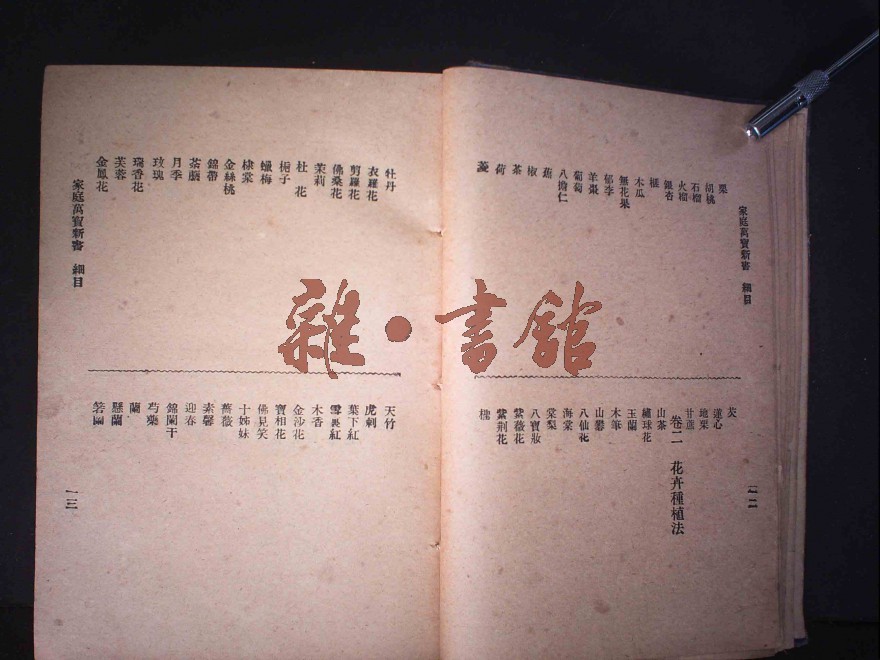 家庭萬寶新書 細目
栗
胡桃
石榴
火榴
銀杏
榧
木瓜
無花果
郁李
羊棗
葡萄
八擔仁
蕉
椒
茶
荷
菱
芡
蓮心
地栗
甘蔗
卷二 花卉種植法
山茶
繡球花
玉蘭
木筆
山礬
八仙花
海棠
棠梨
八寶妝
紫薇花
紫荆花
槐
一二
牡丹
衣羅花
剪羅花
佛桑花
茉莉
杜花
梔子
蠟梅
棣棠
金絲桃
錦帶
荼䕷
月季
玫瑰
瑞香花
芙蓉
金鳳花
家庭萬寶新書 細目
天竹
虎刺
葉下紅
雪裏紅
木香
金沙花
寶相花
佛見笑
十姊妹
薔薇
素馨
迎春
錦闌干
芍藥
蘭
懸蘭
箬蘭
一三
雜·書館